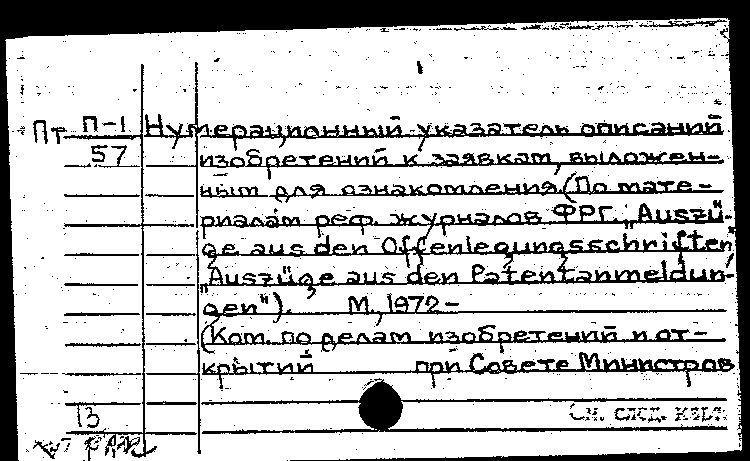 Пт П-1 Нумерационный указатель описаний
57 изобретений к заявкам, выложен-
ным для ознакомления (По мате-
риалам реф. журналов ФРГ. „Auszü-
ge aus den Offenlegungsschriften",
„Auszüge aus den Patentanmeldun-
gen"). М., 1972 –
(Ком. по делам изобретений и от-
крытий при Совете Министров
13 См. след. карт.